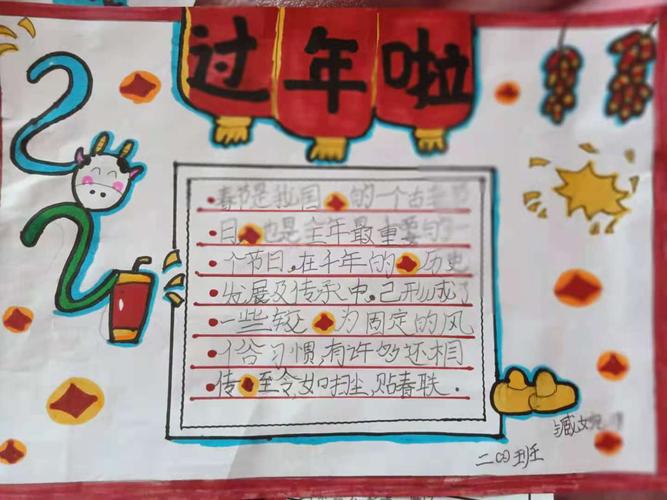 过年啦
2021
春节是我国的一个古
日,也是全年最重要的一
个节日,在千年的历史
发展及传承中,已形成了
一些较为固定的风
俗习惯,有许多还相
传至今,如扫尘,贴春联.
二四班